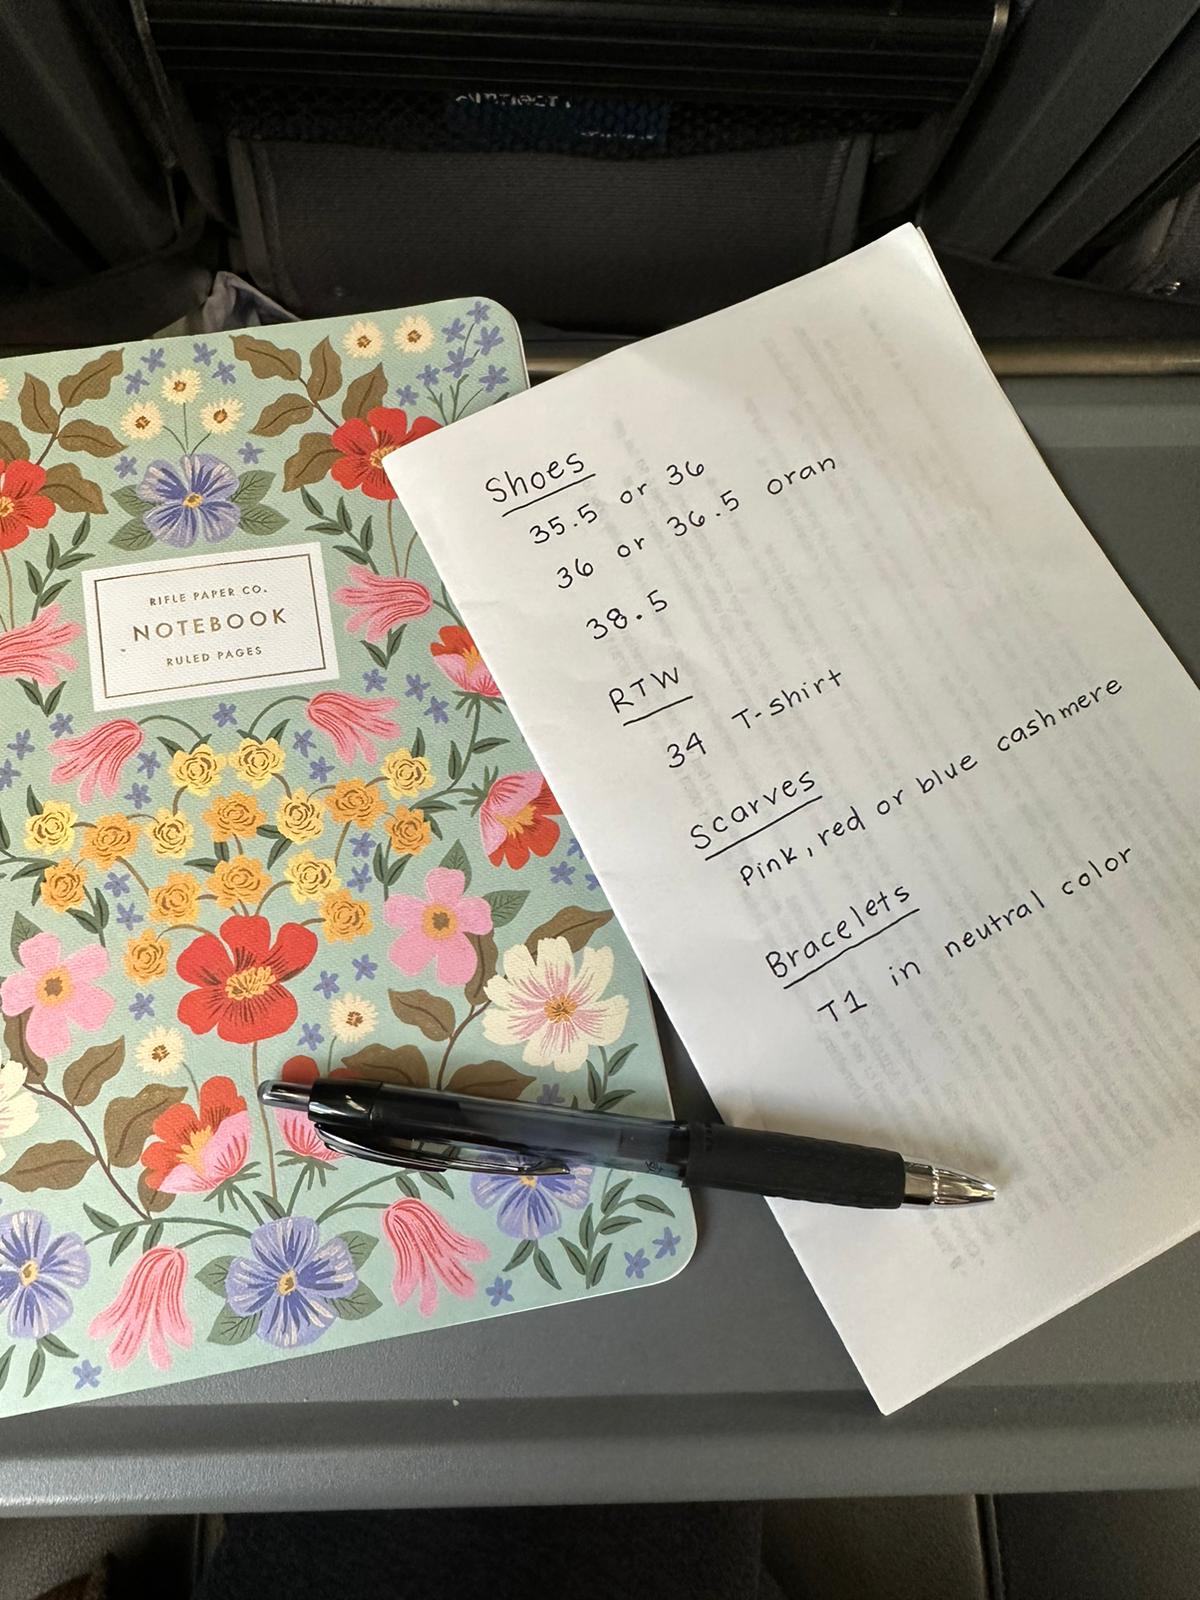 RIFLE PAPER CO.
NOTEBOOK
RULED PAGES
Shoes
35.5 or 36
36 or 36.5 oran
38.5
RTW
34 T-shirt
Scarves
Pink, red or blue cashmere
Bracelets
T1 in neutral color